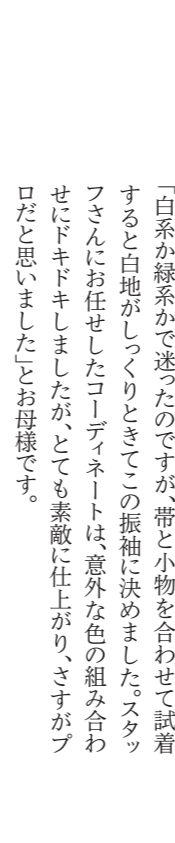 「白系か緑系かで迷ったのですが、帯と小物を合わせて試着
すると白地がしっくりときてこの振袖に決めました。スタッ
フさんにお任せしたコーディネートは、意外な色の組み合わ
せにドキドキしましたが、とても素敵に仕上がり、さすがプ
ロだと思いました」とお母様です。